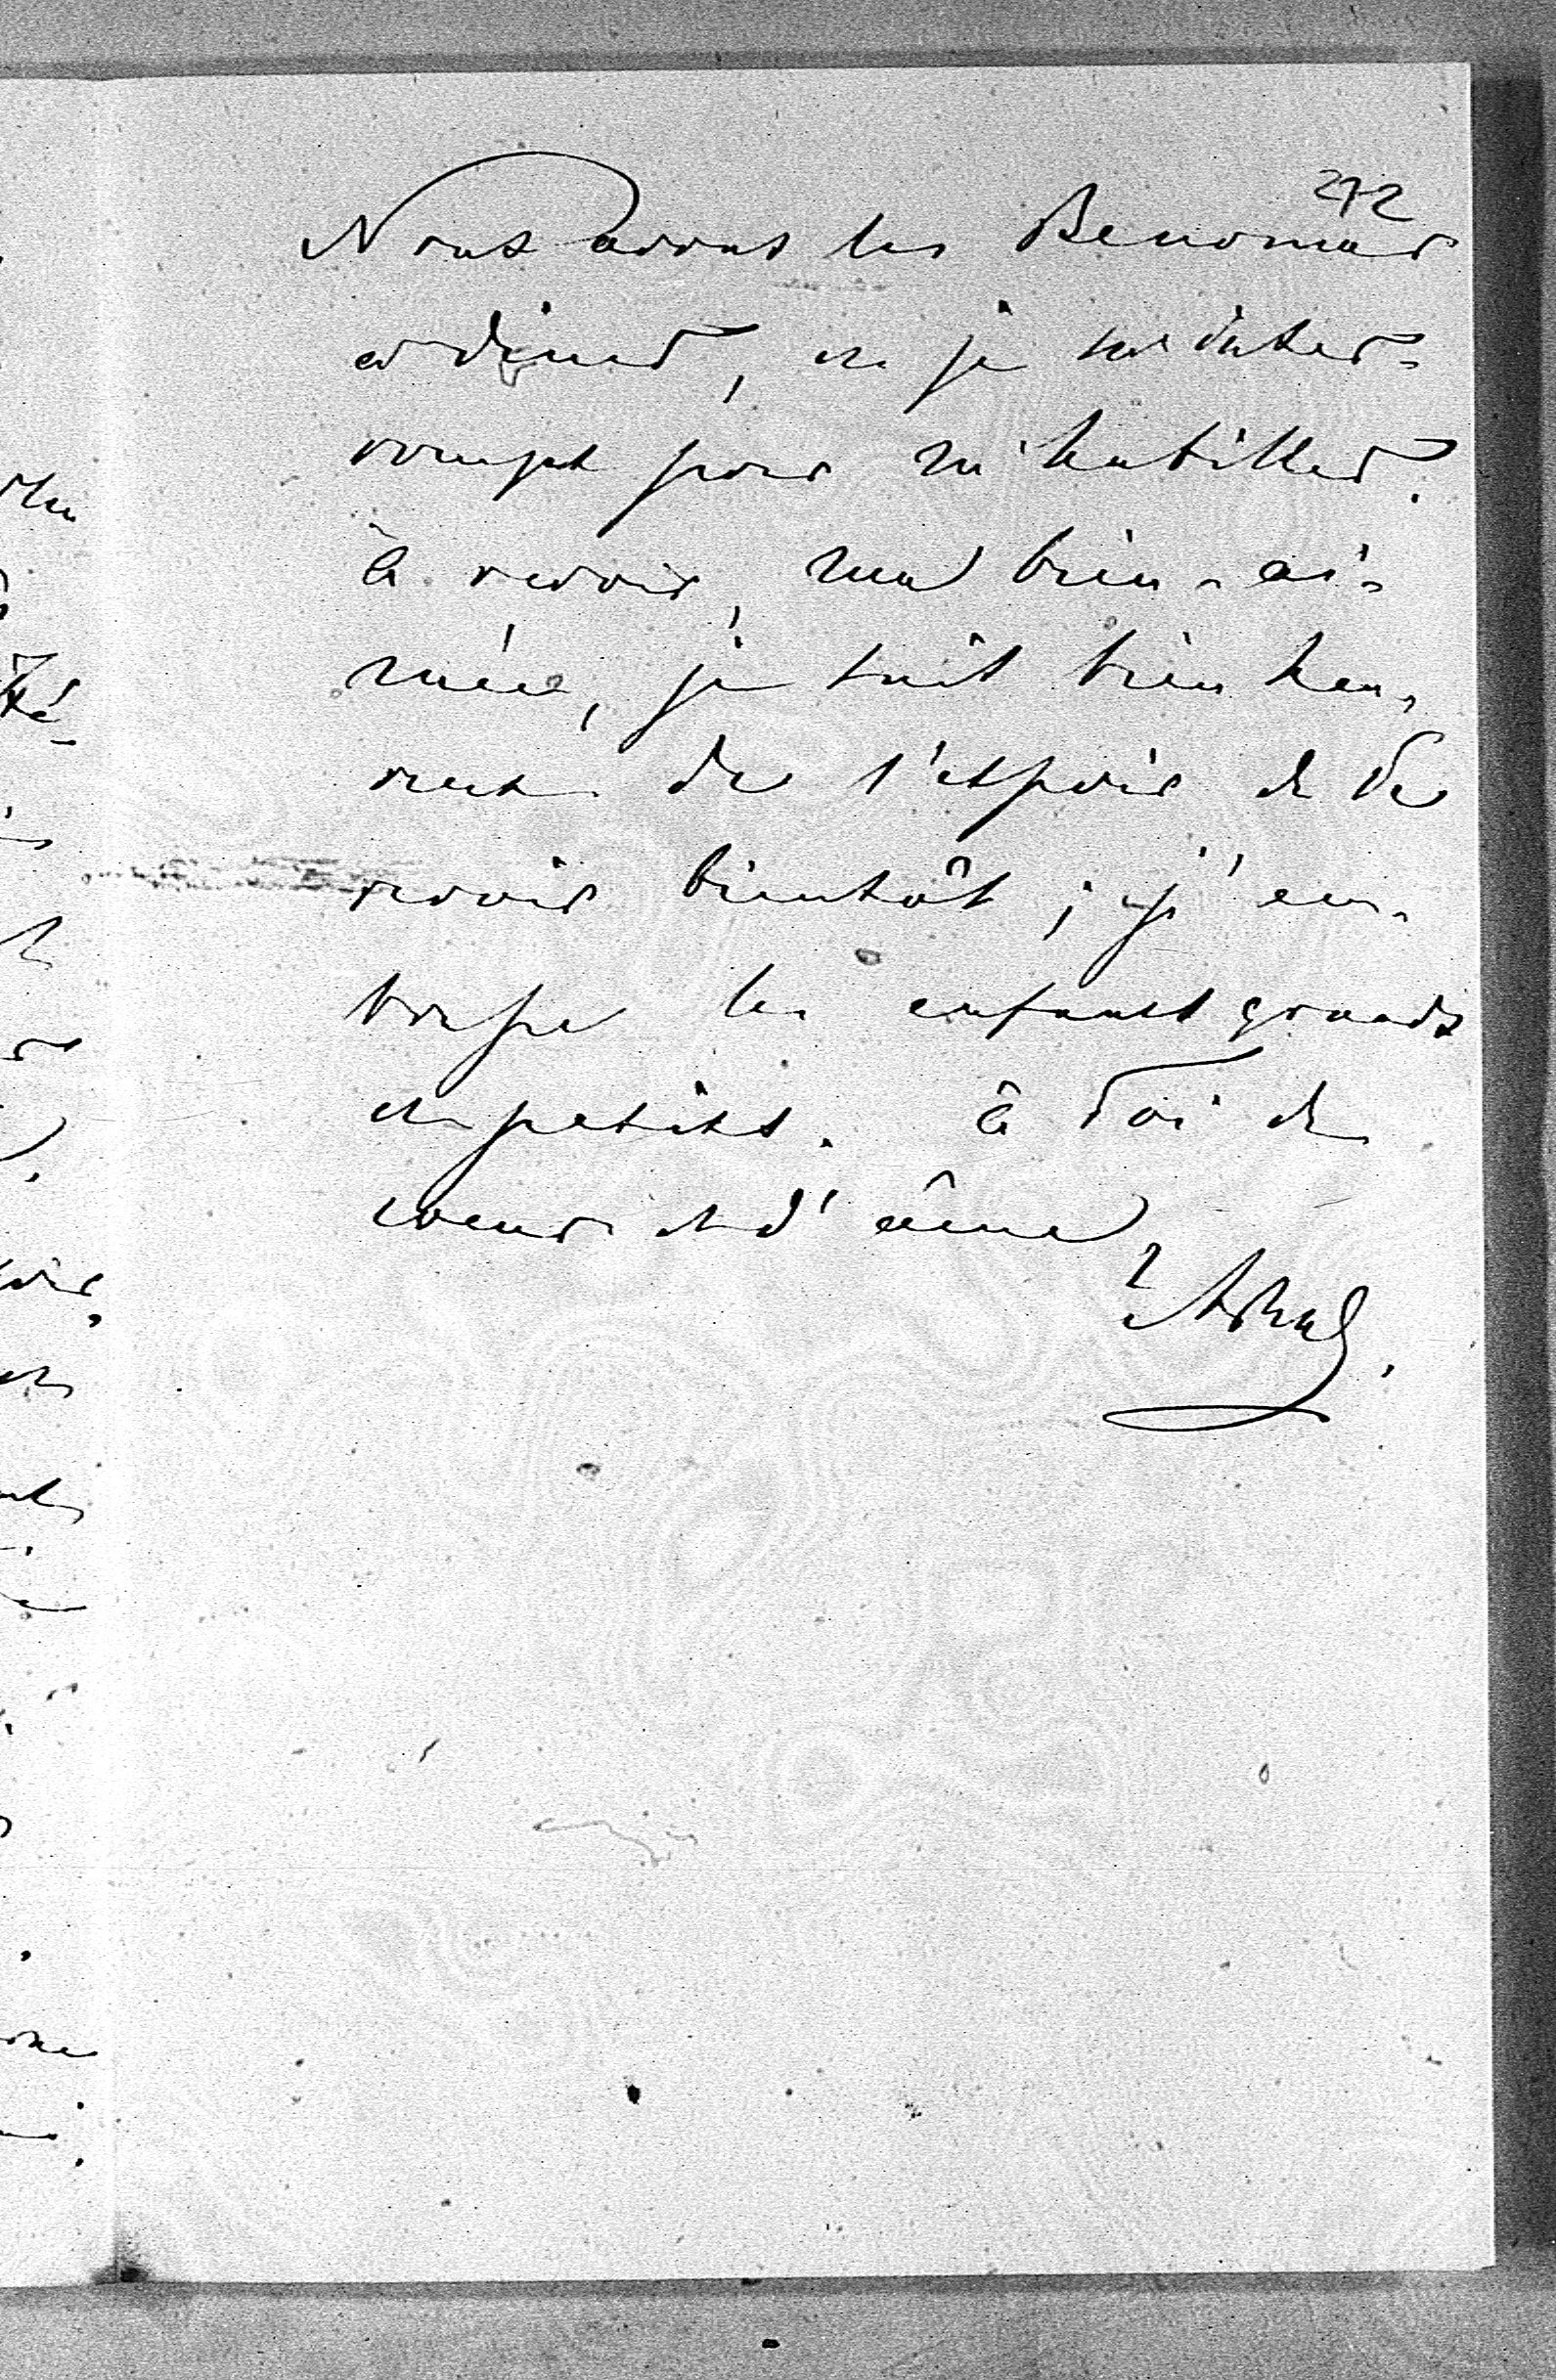 272
Nous avons les Benomar
à dîner, et je m'inter-
romps pour m'habiller.
à revoir, ma bien-ai-
mée, je suis bien heu-
reux de l'espoir de te
revoir bientôt ; j'em-
brasse les enfants grands
et petits. à toi de
coeur et d'âme